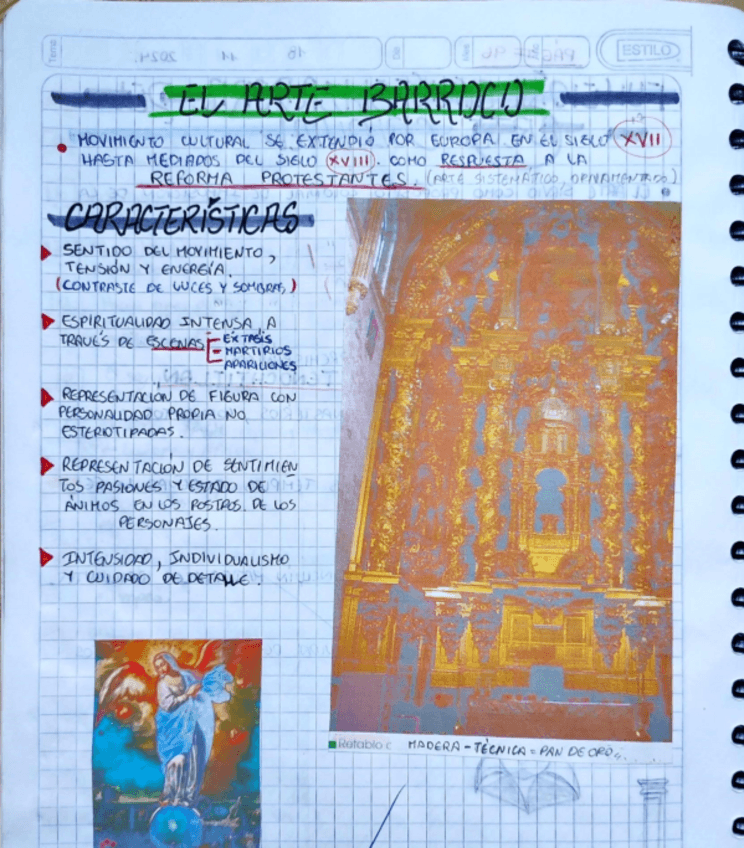 ESTILO
EL ARTE BARROCO
• MOVIMIENTO CULTURAL SE EXTENDIÓ POR EUROPA EN EL SIGLO XVII
HASTA MEDIADOS DEL SIGLO XVIII. COMO RESPUESTA A LA
REFORMA PROTESTANTES. (ARTE SISTEMÁTICO, ORNAMENTADO)
CARACTERÍSTICAS
SENTIDO DEL MOVIMIENTO,
TENSIÓN Y ENERGÍA.
(CONTRASTE DE LUCES Y SOMBRAS)
ESPIRITUALIDAD INTENSA A
TRAVÉS DE ESCENAS
ÉXTASIS
MARTIRIOS
APARICIONES
REPRESENTACIÓN DE FIGURA CON
PERSONALIDAD PROPIA NO
ESTERIOTIPADAS.
REPRESENTACIÓN DE SENTIMIEN
TOS PASIONES Y ESTADO DE
ÁNIMOS EN LOS POSTAS DE LOS
PERSONAJES.
INTENSIDAD, INDIVIDUALISMO
Y CUIDADO DE DETALLE.
Retablo c MADERA - TÉCNICA = PAN DE ORO